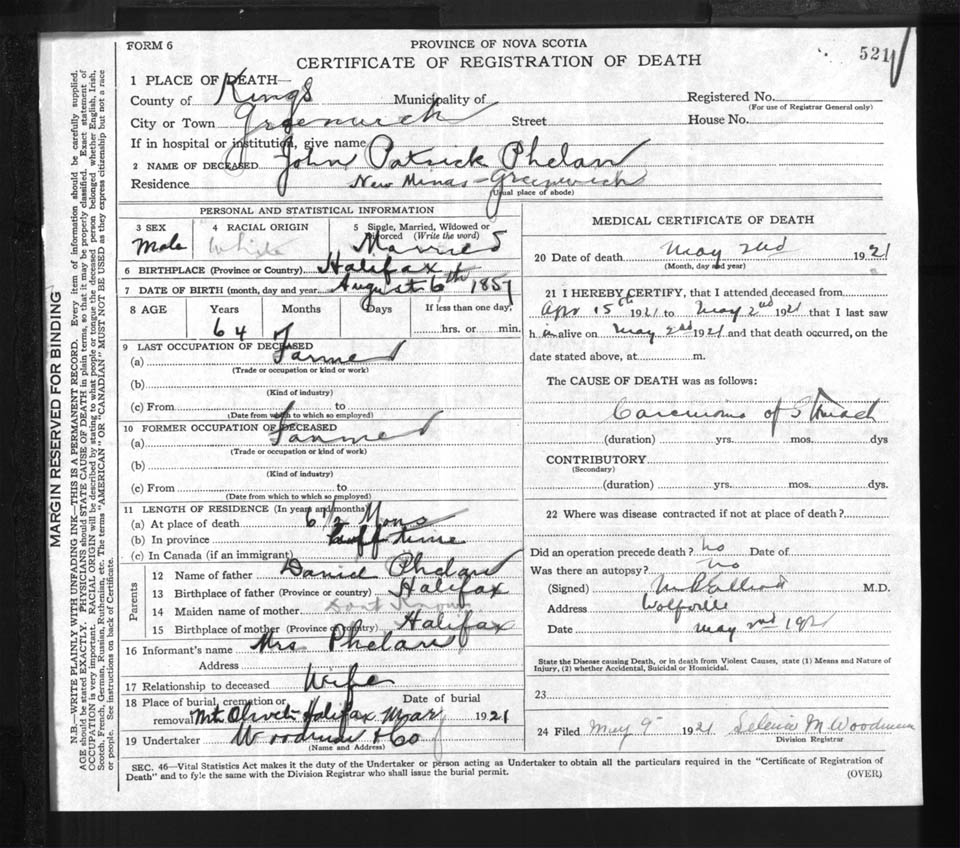 FORM 6
PROVINCE OF NOVA SCOTIA
521
CERTIFICATE OF REGISTRATION OF DEATH
1 PLACE OF DEATH—
County of Kings Municipality of Registered No.
(For use of Registrar General only)
City or Town Greenwich Street House No.
If in hospital or institution, give name
2 NAME OF DECEASED John Patrick Phelan
Residence New Minas - Greenwich
(Usual place of abode)
PERSONAL AND STATISTICAL INFORMATION
3 SEX Male
4 RACIAL ORIGIN White
5 Single, Married, Widowed or Divorced (Write the word) Married
6 BIRTHPLACE (Province or Country) Halifax
7 DATE OF BIRTH (month, day and year) August 6th 1857
8 AGE Years Months Days If less than one day,
64 hrs. or min.
9 LAST OCCUPATION OF DECEASED
(a) Farmer
(Trade or occupation or kind of work)
(b)
(Kind of industry)
(c) From to
(Date from which to which so employed)
10 FORMER OCCUPATION OF DECEASED
(a) Farmer
(Trade or occupation or kind of work)
(b)
(Kind of industry)
(c) From to
(Date from which to which so employed)
11 LENGTH OF RESIDENCE (In years and months)
(a) At place of death 6 1/2 Mons
(b) In province time
(c) In Canada (if an immigrant)
Parents
12 Name of father Daniel Phelan
13 Birthplace of father (Province or country) Halifax
14 Maiden name of mother Dont Know
15 Birthplace of mother (Province or country) Halifax
16 Informant's name Mrs Phelan
Address
17 Relationship to deceased Wife
18 Place of burial, cremation or removal Mt Olivet Halifax Date of burial 1921
19 Undertaker Woodman & Co
(Name and Address)
MEDICAL CERTIFICATE OF DEATH
20 Date of death May 2nd 1921
(Month, day and year)
21 I HEREBY CERTIFY, that I attended deceased from
Apr 15th 1921 to May 2nd 1921 that I last saw
him alive on May 2nd 1921 and that death occurred, on the
date stated above, at m.
The CAUSE OF DEATH was as follows:
Carcinoma of Stomach
(duration) yrs. mos. dys
CONTRIBUTORY
(Secondary)
(duration) yrs. mos. dys.
22 Where was disease contracted if not at place of death?
Did an operation precede death? no Date of
Was there an autopsy? no
(Signed) M.D.
Address Wolfville
Date May 2nd 1921
State the Disease causing Death, or in death from Violent Causes, state (1) Means and Nature of
Injury, (2) whether Accidental, Suicidal or Homicidal.
23
24 Filed May 9 1921 M Woodman
Division Registrar
SEC. 46—Vital Statistics Act makes it the duty of the Undertaker or person acting as Undertaker to obtain all the particulars required in the "Certificate of Registration of
Death" and to fyle the same with the Division Registrar who shall issue the burial permit.
(OVER)
MARGIN RESERVED FOR BINDING
N.B.—WRITE PLAINLY WITH UNFADING INK—THIS IS A PERMANENT RECORD. Every item of information should be carefully supplied.
AGE should be stated EXACTLY. PHYSICIANS should STATE CAUSE OF DEATH in plain terms, so that it may be properly classified. Exact statement of
OCCUPATION is very important. RACIAL ORIGIN will be described by stating to what people or tongue the deceased person belonged whether English, Irish,
Scotch, French, German, Russian, Ruthenian, etc. The terms "AMERICAN" OR "CANADIAN" MUST NOT BE USED as they express citizenship but not a race
or people. See instructions on back of Certificate.